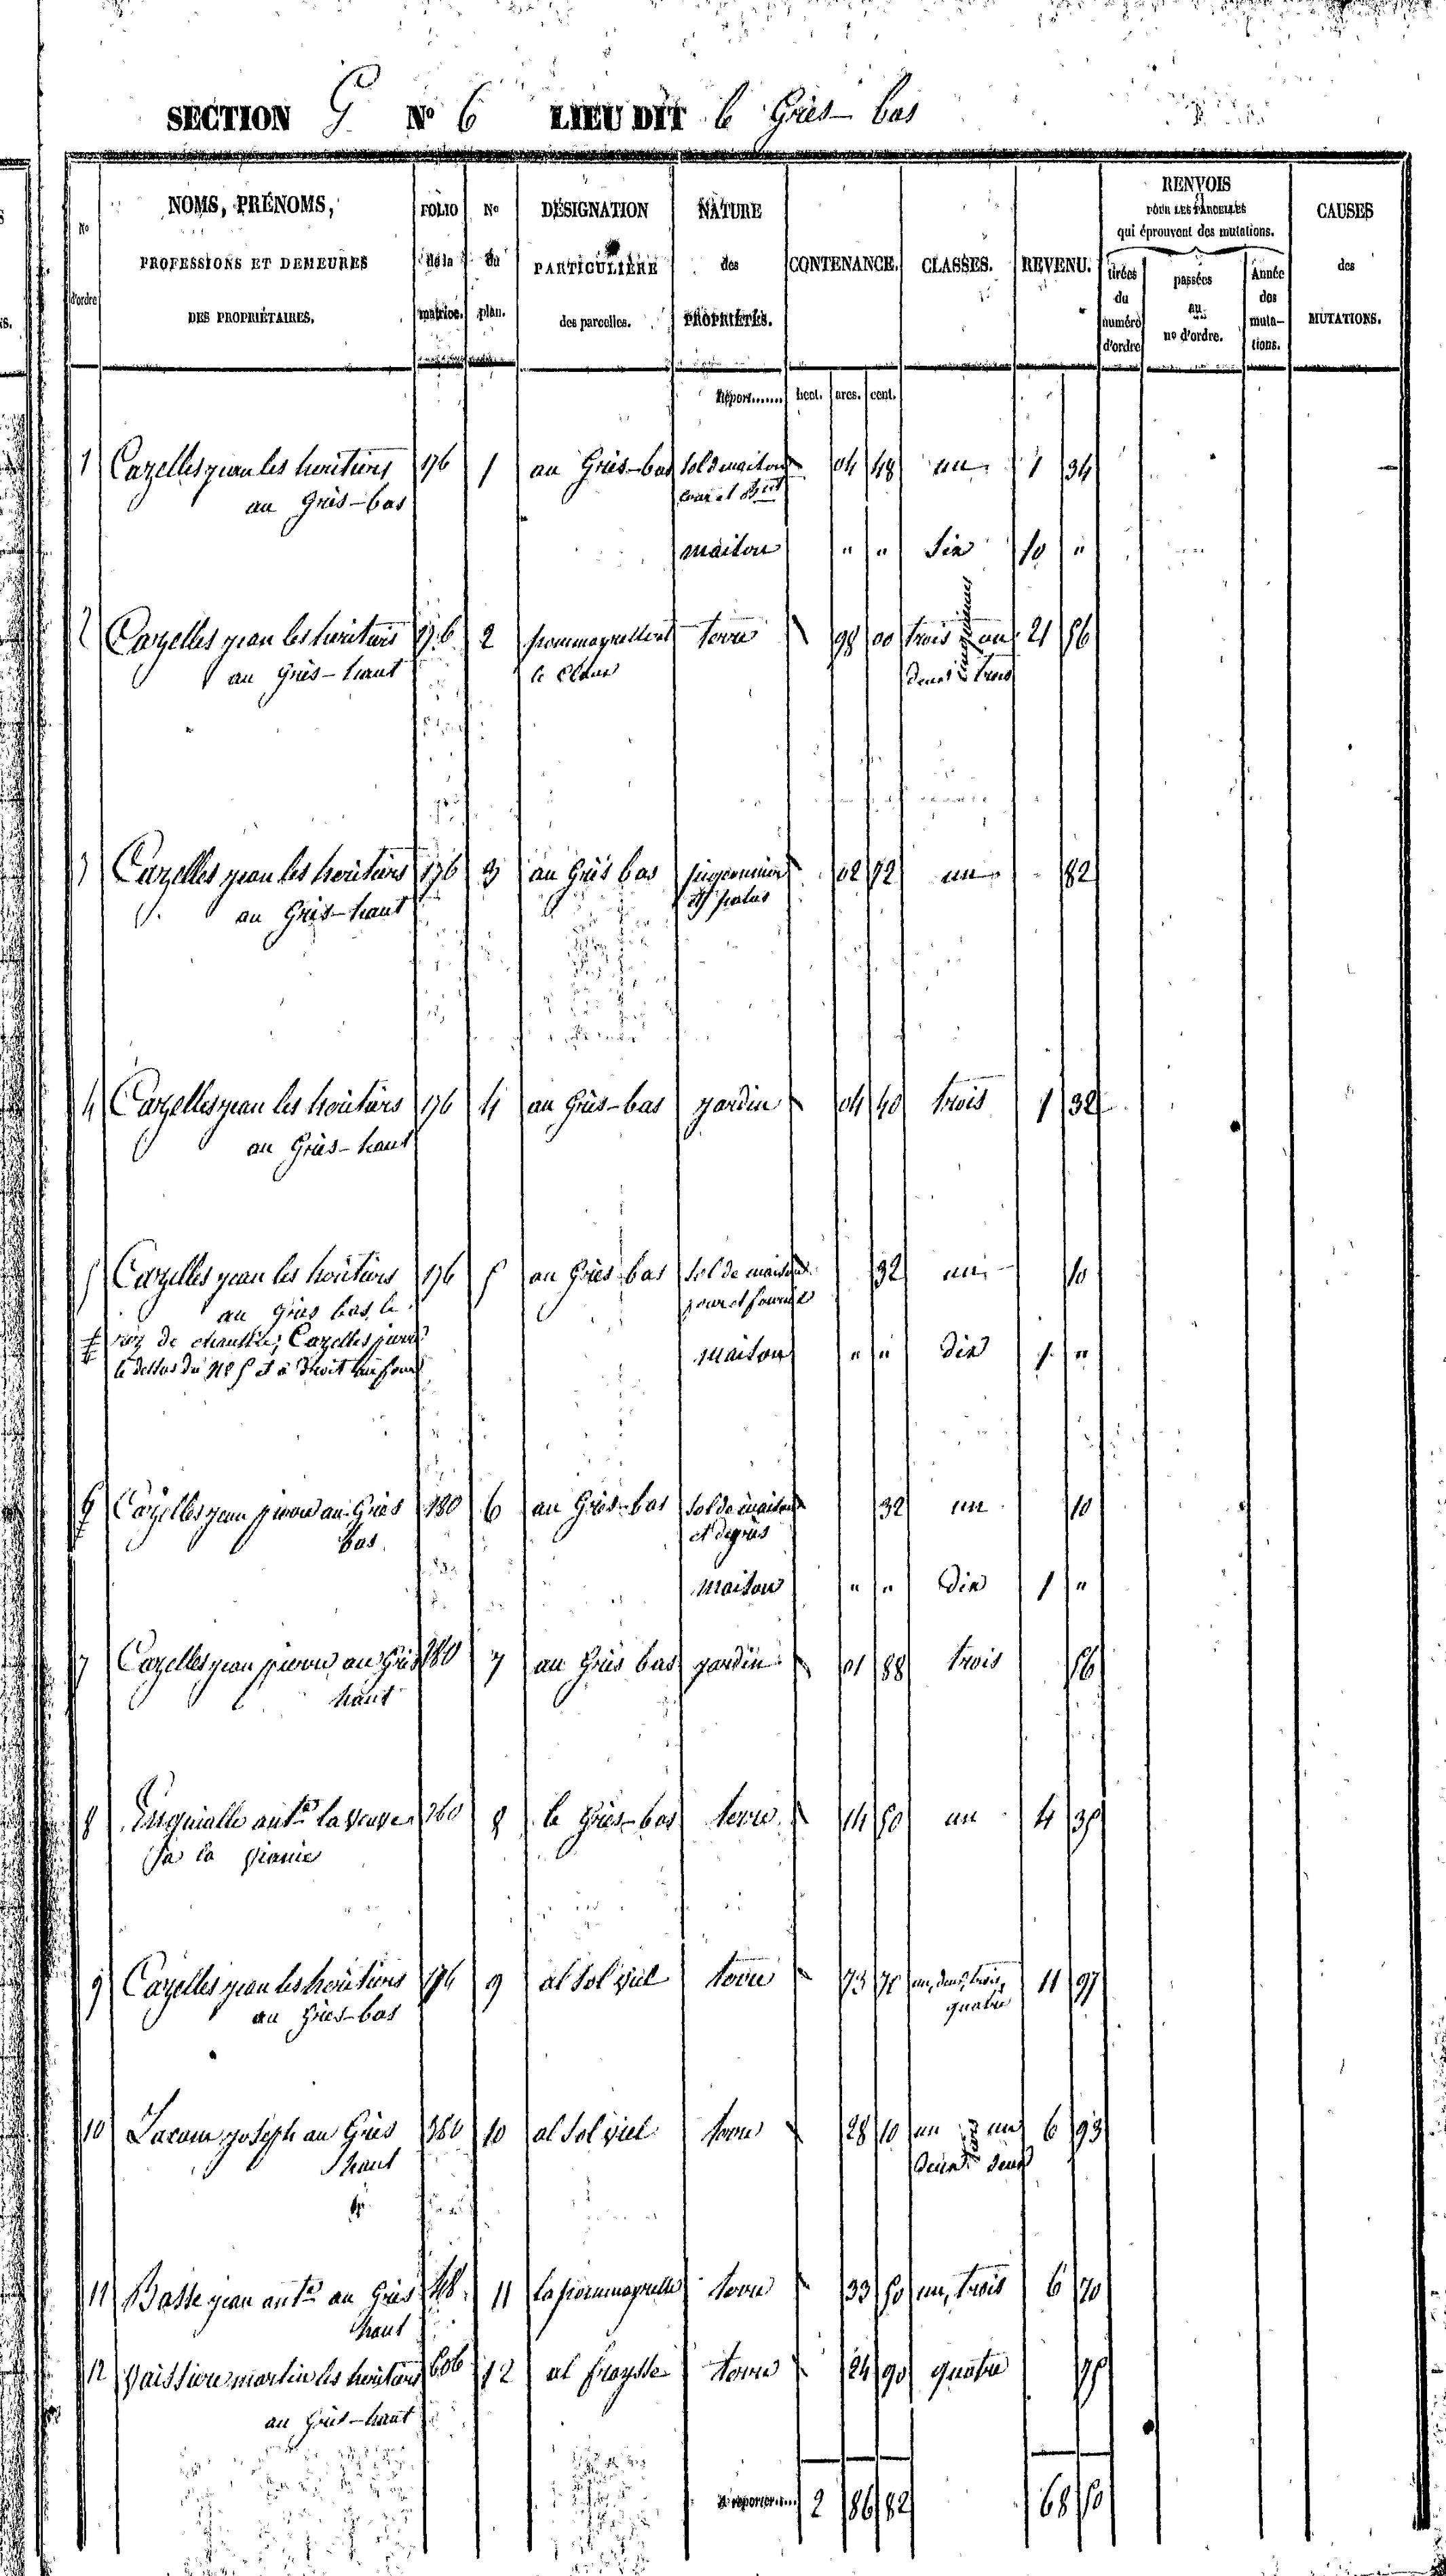 SECTION G Nº 6 LIEU DIT le Griès-bas
Nº d'ordre
NOMS, PRÉNOMS, PROFESSIONS ET DEMEURES DES PROPRIÉTAIRES.
FOLIO de la matrice.
Nº du plan.
DÉSIGNATION PARTICULIÈRE des parcelles.
NATURE des PROPRIÉTÉS.
CONTENANCE.
CLASSES.
REVENU.
RENVOIS POUR LES PARCELLES qui éprouvent des mutations.
tirées du numéro d'ordre
passées au nº d'ordre.
Année des mutations.
CAUSES des MUTATIONS.
Report....... hect. ares. cent.
1 Cazelles jean les heritiers 176 1 au Griès-bas sol de maison 04 48 un 1 34
au Griès-bas cour et
maison " " six 10 "
2 Cazelles jean les heritiers 176 2 terre 98 00 trois un 21 56
au Griès-haut le Claux deux trois
3 Cazelles jean les heritiers 176 3 au Griès bas 02 72 un 82
au Griès-haut et patus
4 Cazelles jean les heritiers 176 4 au Griès-bas jardin 04 40 trois 1 32
au Griès-haut
5 Cazelles jean les heritiers 176 5 au Griès bas sol de maison 32 un 10
au Griès bas le
rez de chaussée; Cazelles pierre
maison " " dix 1 "
le dessus du Nº 5 et a droit au four
6 Cazelles jean pierre au Griès 180 6 au Griès-bas sol de maison 32 un 10
bas et degrès
maison " " dix 1 "
7 Cazelles jean pierre au Griès 180 7 au Griès bas jardin 01 88 trois 56
haut
8 antne la veuve 260 8 le Griès-bas terre 14 50 un 4 35
a la
9 Cazelles jean les heritiers 176 9 al sol viel terre 73 70 un, deux, trois, 11 97
au Griès-bas quatre
10 Lacam joseph au Griès 380 10 al sol viel terre 28 10 un un 6 93
haut deux deux
11 Basse jean antne au Griès 48 11 terre 33 50 un, trois 6 70
haut
12 Vaissiere martin les heritiers 606 12 al fraysse terre 24 90 quatre 75
au Griès-haut
A reporter..... 2 86 82 68 50